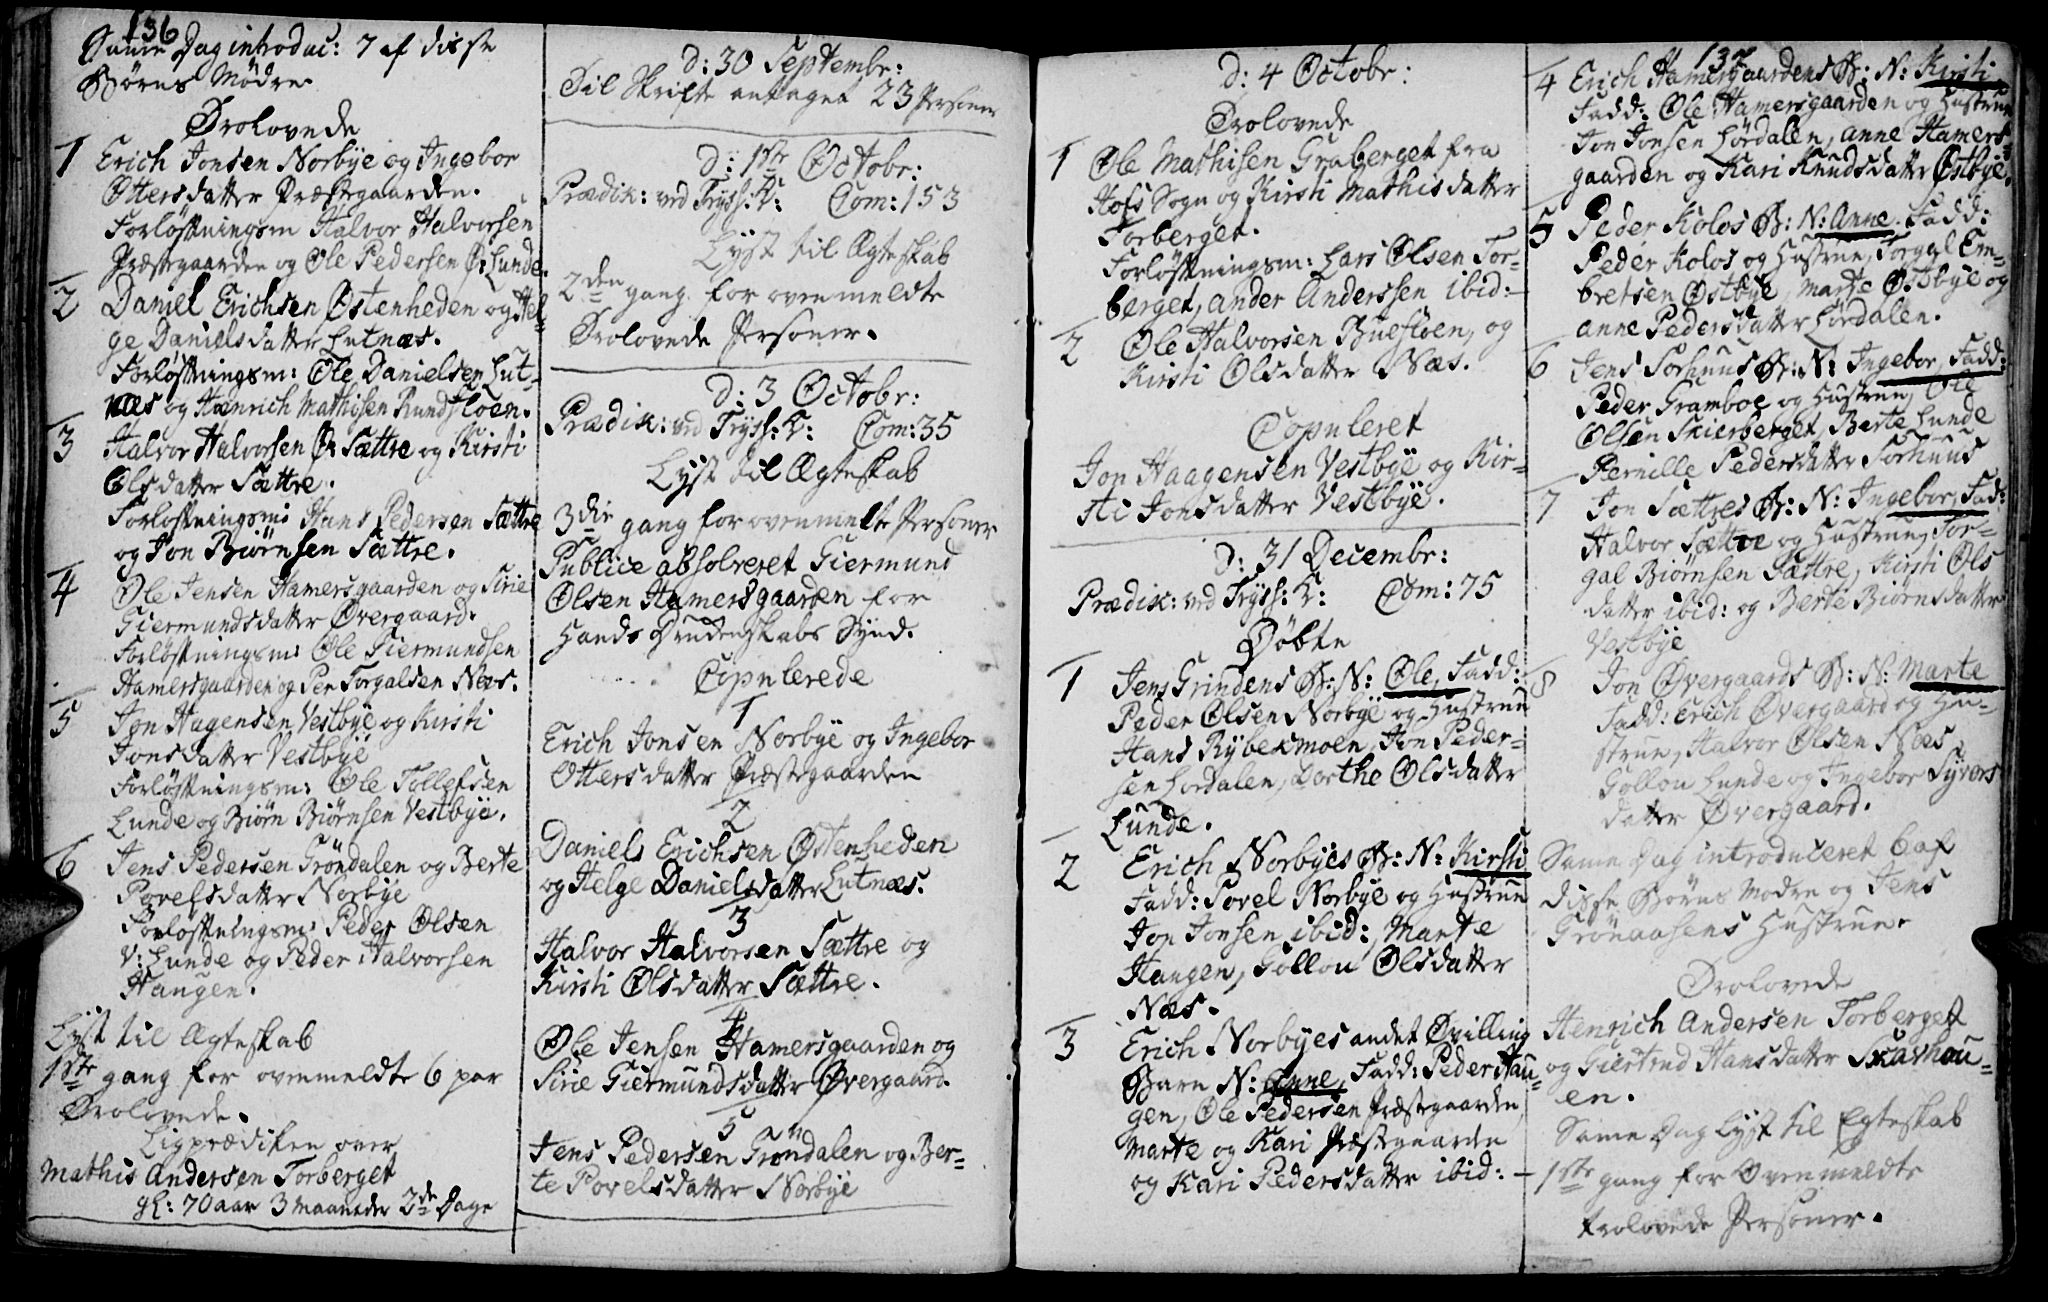 136
Samme Dag introduc: 7 af disse
Børns Mödre
Trolovede
1 Erich Jonsen Norbÿe og Ingebor
Ottersdatter Præstgaarden.
Forløftningsm Halvor Halvorsen
Præstgaarden og Ole Pedersen Ø: Lunde.
2 Daniel Erichsen Østenheden og Hel-
ge Danielsdatter Lutnæs.
Forløftningsm: Ole Danielsen Lut-
næs og Hænrich Mathisen Rundfloen.
3 Halvor Halvorsen Ø: Sættre og Kirsti
Olsdatter Sættre.
Forløftningsm: Hans Pedersen Sættre
og Jon Biørnsen Sættre.
4 Ole Jensen Hamersgaarden og Sirie
Giermundsdatter Øvergaard.
Forløftningsm: Ole Giermundsen
Hamersgaarden og Per Torgalsen Næs.
5 Jon Hagensen Vestbÿe og Kirsti
Jonsdatter Vestbÿe
Forløftningsm: Ole Tollefsen
Lunde og Biørn Biørnsen Vestbÿe.
6 Jens Pedersen Tröndalen og Berte
Povelsdatter Norbÿe
Forløftningsm: Peder Olsen
V: Lunde og Peder Halvorsen
Haugen.
Lyst til Ægteskab
1ste gang for ovenmeldte 6 par
Trolovede.
Ligprædiken over
Mathis Andersen Torberget
gl: 70 aar 3 maaneder 2de Dage
d: 30 Septembr:
Til Skrifte antaget 23 Personer
d: 1ste Octobr:
Prædik: ved Trÿss: K: Com: 153
Lyst til Ægteskab
2den gang for ovenmeldte
Trolovede Personer.
d: 3 Octobr:
Prædik: ved Trÿss: K: Com: 35
Lyst til Ægteskab
3die gang for ovenmelte Personer
Publice absolveret Giermund
Olsen Hamersgaarden for
Hands Synd.
Copulerede
1
Erich Jonsen Norbÿe og Ingebor
Ottersdatter Præstegaarden
2
Daniels Erichsen Østenheden
og Helge Danielsdatter Lutnæs.
3
Halvor Halvorsen Sættre og
Kirsti Olsdatter Sættre.
4
Ole Jensen Hamersgaarden og
Sirie Giermundsdatter Øvergaard.
5
Jens Pedersen Tröndalen og Ber-
te Povelsdatter Norbÿe
d: 4 Octobr:
Trolovede
1 Ole Mathisen Graberget fra
Hofs Sogn og Kirsti Mathisdatter
Torberget.
Forløftningsm: Lars Olsen Tor-
berget, Ander Anderssen ibid:
2 Ole Halvorsen Buefloen, og
Kirsti Olsdatter Næs.
Copuleret
Jon Haagensen Vestbÿe og Kir-
sti Jonsdatter Vestbÿe.
d: 31 Decembr:
Prædik: ved Trÿss: K: Com: 75
Döbte
1 Jens Grindens B: N: Ole, Fadd:
Peder Olsen Norbÿe og Hustrue
Hans Rÿbexmoen, Jon Peder-
sen Lördalen, Dorthe Olsdatter
Lunde.
2 Erich Norbÿes B: N: Kirsti
Fadd: Povel Norbÿe og Hustrue
Jon Jonsen ibid: Marte
Haugen, Gollou Olsdatter
Næs.
3 Erich Norbÿes andet Tvilling
Barn N: Anne, Fadd: Peder Hau-
gen, Ole Pedersen Præstegaarden,
Marte og Kari Præstgaarden
og Kari Pedersdatter ibid: -
137
4 Erich Hamersgaardens B: N: Kirsti
Fadd: Ole Hamersgaarden og Hustrue
Jon Jonsen Lördalen, Anne Hamers-
gaarden og Kari Knudsdatter Østbÿe.
5 Peder Kolos B: N: Anne. Fadd:
Peder Kolos og Hustrue, Torgal Em-
bretsen Østbÿe, Marte Østbÿe og
Anne Pedersdatter Lördalen.
6 Jens Sorhuus B: N: Ingebor, Fadd:
Peder Gramboe og Hustrue, Ole
Olsen Skierberget, Berte Lunde
Pernille Pedersdatter Sorhuus
7 Jon Sættres B: N: Ingebor, Fad:
Halvor Sættre og Hustrue, Tor-
gal Biørnsen Sættre, Kirsti Ols
datter ibid: og Berte Biørnsdatter
Vestbÿe
8 Jon Øvergaards B: N: Marte
Fadd: Erich Øvergaard og Hu-
strue, Halvor Olsen Næs,
Gollou Lunde og Ingebor Sÿvers
datter Øvergaard.
Same Dag introduceret 6 af
disse Börns Modre og Jens
Grönaasens Hustrue.
Trolovede
Henrich Andersen Torberget
og Giertrud Hansdatter Skavhou-
en.
Same Dag lyst til Egteskab
1ste gang for Ovenmeldte
trolovede Personer.